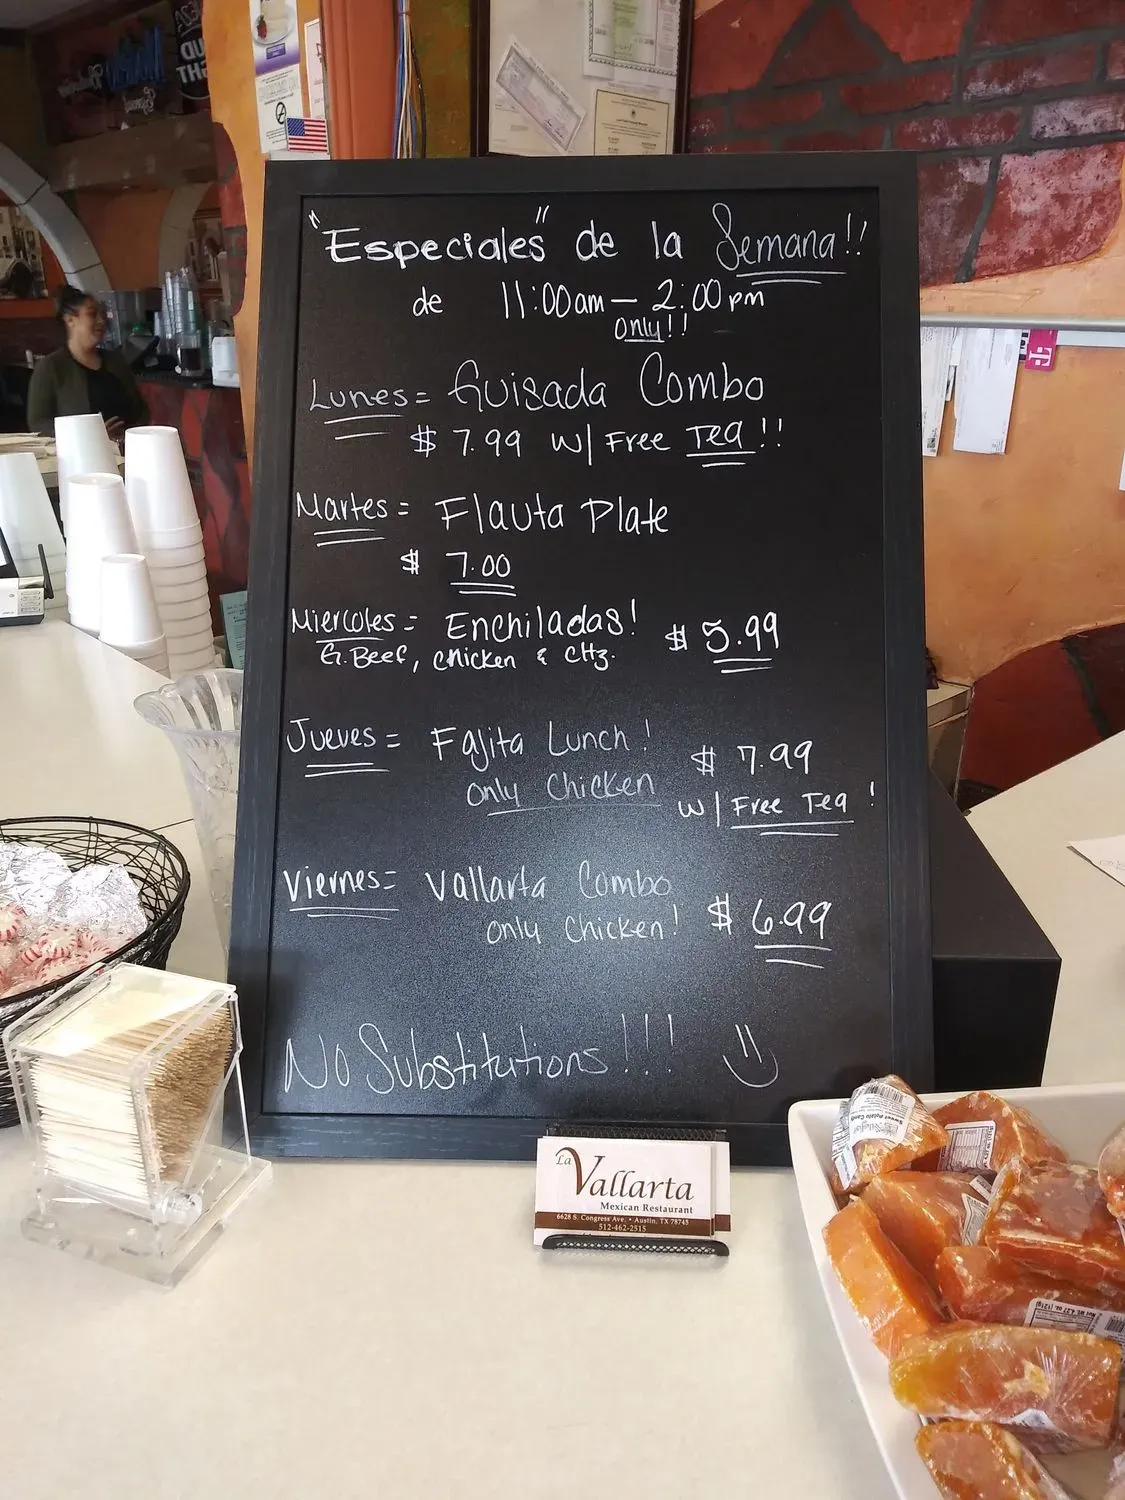 "Especiales" de la Semana!!
de 11:00am - 2:00pm
only!!
Lunes = Guisada Combo
$ 7.99 w/ Free Tea!!
Martes = Flauta Plate
$ 7.00
Miercoles = Enchiladas! $ 5.99
G. Beef, chicken & CHz.
Jueves = Fajita Lunch! $ 7.99
only Chicken
w/ Free Tea!
Viernes = Vallarta Combo
only Chicken! $ 6.99
No Substitutions!!!
La Vallarta
Mexican Restaurant
6628 S. Congress Ave. • Austin, TX 78745
512-462-2515
Sweet Potato Candy
Net Wt. 4.27 oz. (121g)